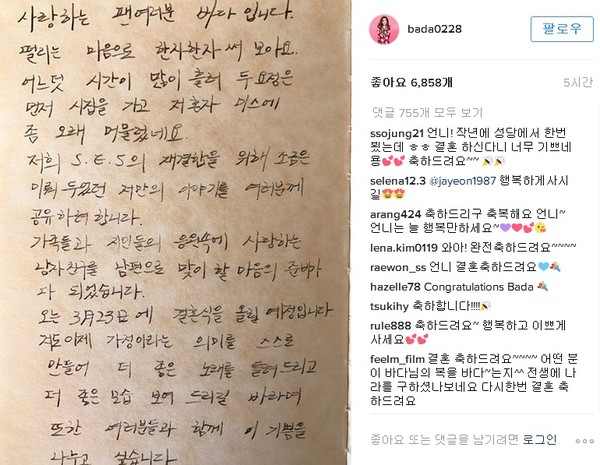 사랑하는 팬여러분 바다 입니다.
떨리는 마음으로 한자한자 써 보아요.
어느덧 시간이 많이 흘러 두 요정은
먼저 시집을 가고 저혼자 미스에
좀 오래 머물렀네요.
저희 S.E.S의 재결합을 위해 조금은
미뤄 두었던 저만의 이야기를 여러분께
공유하려 합니다.
가족들과 지인들의 응원속에 사랑하는
남자친구를 남편으로 맞이 할 마음의 준비가
다 되었습니다.
오는 3月23日에 결혼식을 올릴 예정입니다
저도 이제 가정이라는 의미를 스스로
만들어 더 좋은 노래를 들려드리고
더 좋은 모습 보여 드리길 바라며
또한 여러분들과 함께 이 기쁨을
나누고 싶습니다
bada0228
팔로우
좋아요 6,858개
5시간
댓글 755개 모두 보기
ssojung21 언니! 작년에 성당에서 한번
뵀는데 ㅎㅎ 결혼 하신다니 너무 기쁘네
용💕💕 축하드려요~~ 🎉🎉
selena12.3 @jayeon1987 행복하게사시
길😍😍
arang424 축하드리구 축복해요 언니~
언니는 늘 행복만하세요~💜❤💕😘
lena.kim0119 와아! 완전축하드려요~~~~
raewon_ss 언니 결혼축하드려요💙🎉
hazelle78 Congratulations Bada 🎉
tsukihy 축하합니다!!!!🎉
rule888 축하드려요~ 행복하고 이쁘게
사세요💕💕
feelm_film 결혼 축하드려요~~~~ 어떤 분
이 바다님의 복을 바다~는지^^ 전생에 나
라를 구하셨나보네요 다시한번 결혼 축
하드려요
좋아요 또는 댓글을 남기려면 로그인.